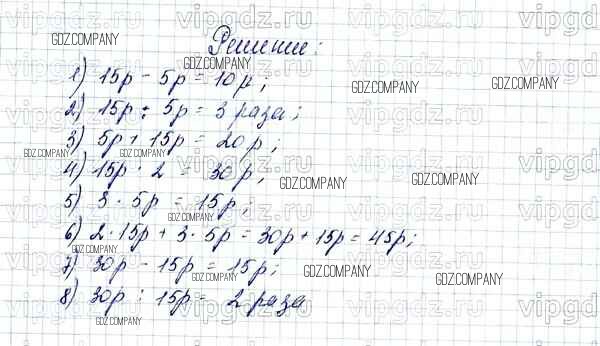 Решение:
1) 15р - 5р = 10р;
2) 15р : 5р = 3 раза;
3) 5р + 15р = 20р;
4) 15р · 2 = 30р;
5) 3 · 5р = 15р;
6) 2 · 15р + 3 · 5р = 30р + 15р = 45р;
7) 30р - 15р = 15р;
8) 30р : 15р = 2 раза
GDZ.COMPANY
GDZ.COMPANY
GDZ.COMPANY
GDZ.COMPANY
GDZ.COMPANY
GDZ.COMPANY
GDZ.COMPANY
GDZ.COMPANY
GDZ.COMPANY
GDZ.COMPANY
GDZ.COMPANY
GDZ.COMPANY
GDZ.COMPANY
GDZ.COMPANY
vipgdz.ru